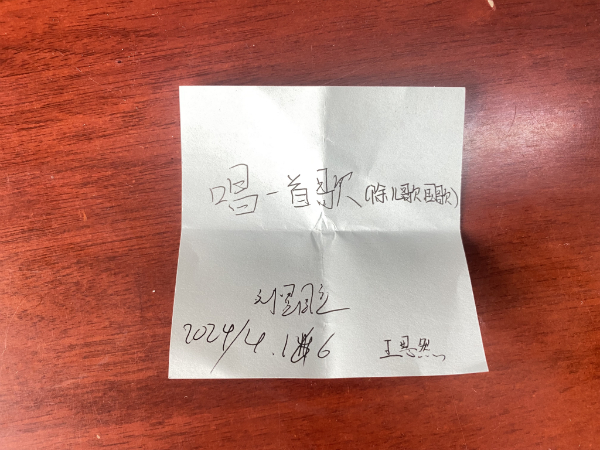 唱一首歌(除儿歌国歌)
2024/4.16
王思然